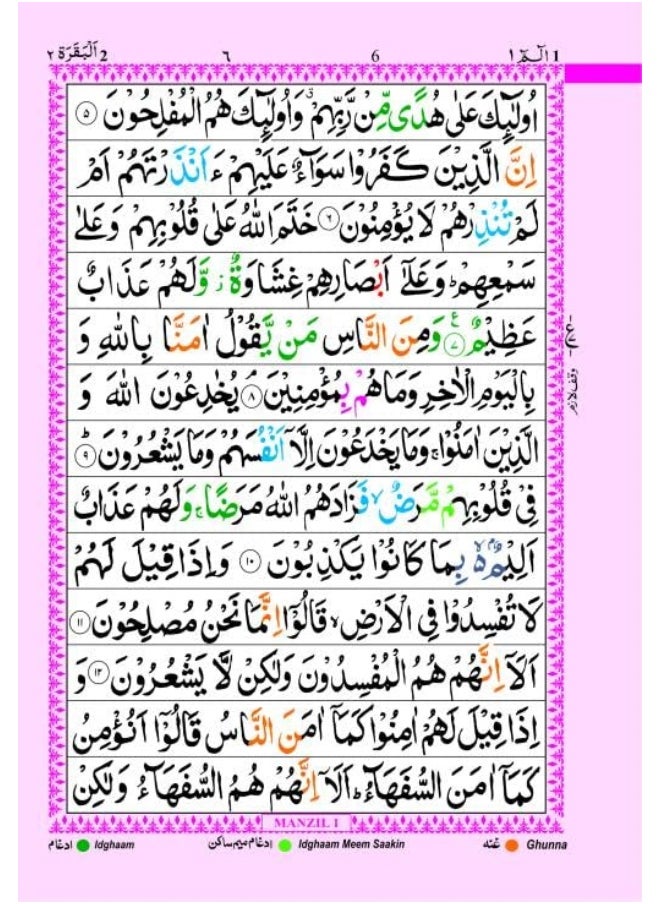 1 الٓمّٓ ١ 6 ٦ 2 اَلْبَقَرَة ٢
اُولٰٓئِكَ عَلٰى هُدًى مِّنْ رَّبِّهِمْ ۗ وَاُولٰٓئِكَ هُمُ الْمُفْلِحُوْنَ ۝٥
اِنَّ الَّذِيْنَ كَفَرُوْا سَوَآءٌ عَلَيْهِمْ ءَاَنْذَرْتَهُمْ اَمْ
لَمْ تُنْذِرْهُمْ لَا يُؤْمِنُوْنَ ۝٦ خَتَمَ اللّٰهُ عَلٰى قُلُوْبِهِمْ وَعَلٰى
سَمْعِهِمْ ؕ وَعَلٰٓى اَبْصَارِهِمْ غِشَاوَةٌ ؗ وَّلَهُمْ عَذَابٌ
عَظِيْمٌ ۝٧ وَمِنَ النَّاسِ مَنْ يَّقُوْلُ اٰمَنَّا بِاللّٰهِ وَ
بِالْيَوْمِ الْاٰخِرِ وَمَا هُمْ بِمُؤْمِنِيْنَ ۝٨ يُخٰدِعُوْنَ اللّٰهَ وَ
الَّذِيْنَ اٰمَنُوْا ۚ وَمَا يَخْدَعُوْنَ اِلَّآ اَنْفُسَهُمْ وَمَا يَشْعُرُوْنَ ۝٩ؕ
فِيْ قُلُوْبِهِمْ مَّرَضٌ ۙ فَزَادَهُمُ اللّٰهُ مَرَضًا ۚ وَلَهُمْ عَذَابٌ
اَلِيْمٌۢ ۙ۬ بِمَا كَانُوْا يَكْذِبُوْنَ ۝١٠ وَاِذَا قِيْلَ لَهُمْ
لَا تُفْسِدُوْا فِي الْاَرْضِ ۙ قَالُوْٓا اِنَّمَا نَحْنُ مُصْلِحُوْنَ ۝١١
اَلَآ اِنَّهُمْ هُمُ الْمُفْسِدُوْنَ وَلٰكِنْ لَّا يَشْعُرُوْنَ ۝١٢ وَ
اِذَا قِيْلَ لَهُمْ اٰمِنُوْا كَمَآ اٰمَنَ النَّاسُ قَالُوْٓا اَنُؤْمِنُ
كَمَآ اٰمَنَ السُّفَهَآءُ ؕ اَلَآ اِنَّهُمْ هُمُ السُّفَهَآءُ وَلٰكِنْ
ع
وقف لازم
MANZIL 1
ادغام Idghaam ادغام میم ساکن Idghaam Meem Saakin غنّه Ghunna